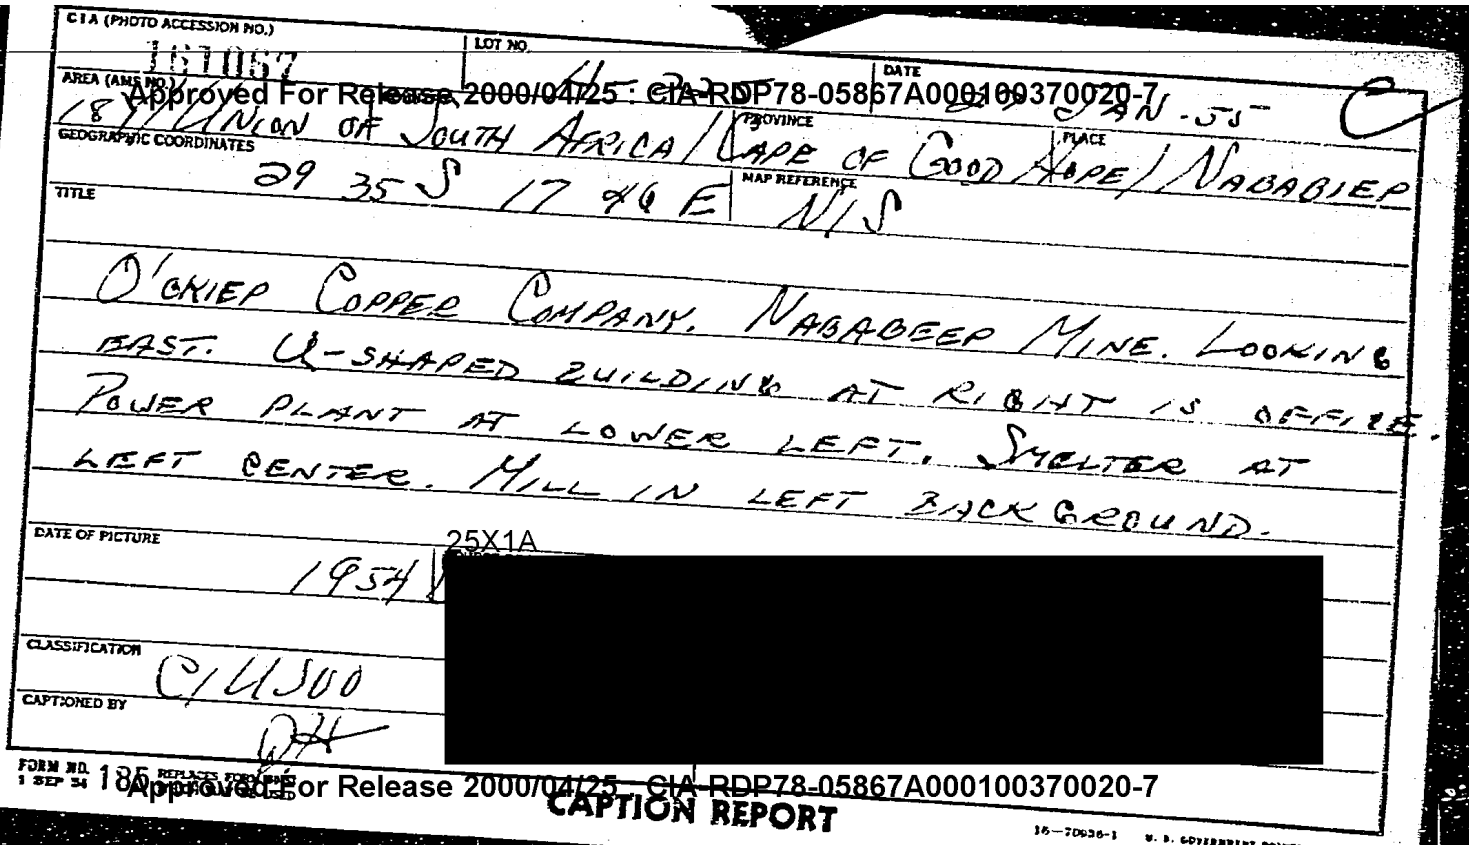 CIA (PHOTO ACCESSION NO.)
161067
LOT NO.
DATE
AREA (AMS NO.)
Approved For Release 2000/04/25 : CIA-RDP78-05867A000100370020-7
JAN. 55
C
UNION OF SOUTH AFRICA / CAPE OF GOOD HOPE / NABABIEP
PROVINCE
PLACE
GEOGRAPHIC COORDINATES
29 35 S 17 46 E
MAP REFERENCE
N/S
TITLE
O'OKIEP COPPER COMPANY. NABABEEP MINE. LOOKING
EAST. U-SHAPED BUILDING AT RIGHT IS OFFICE.
POWER PLANT AT LOWER LEFT. SMELTER AT
LEFT CENTER. MILL IN LEFT BACKGROUND.
DATE OF PICTURE
1954
25X1A
CLASSIFICATION
C/USOO
CAPTIONED BY
FORM NO. 185 REPLACES FORM
1 SEP 54
Approved For Release 2000/04/25 : CIA-RDP78-05867A000100370020-7
CAPTION REPORT
16—70936-1 U. S. GOVERNMENT